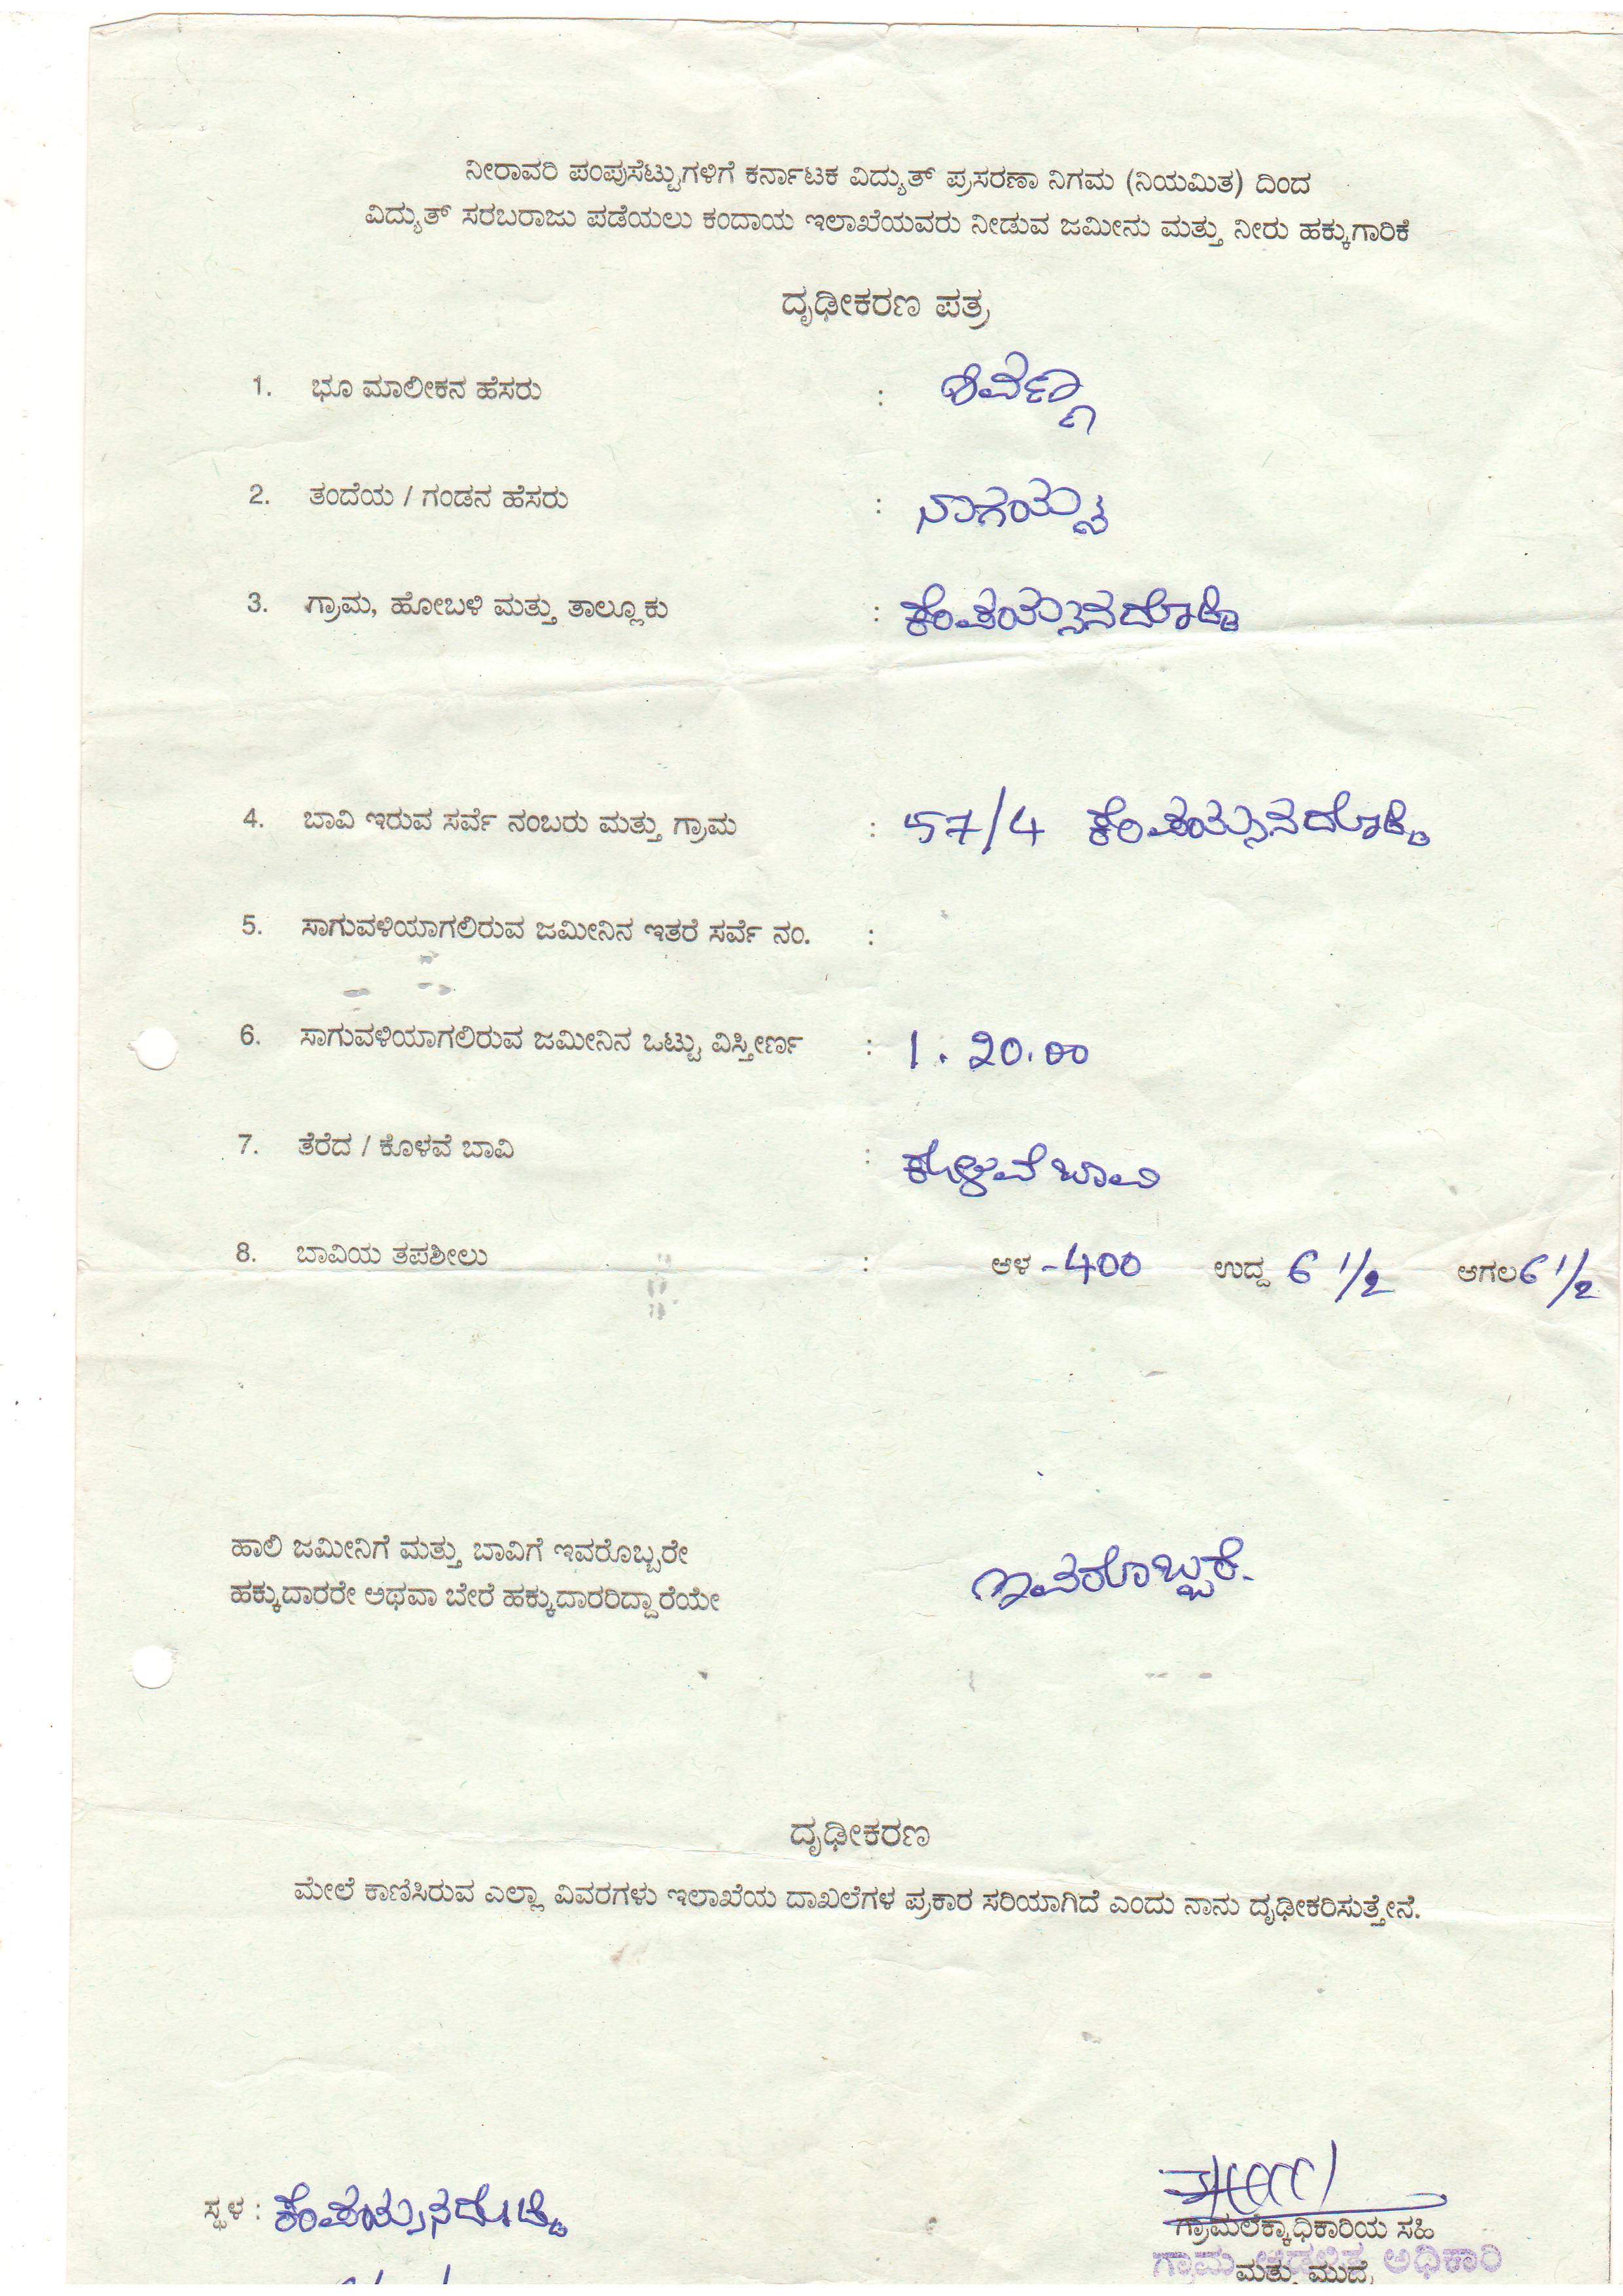 ನೀರಾವರಿ ಪಂಪುಸೆಟ್ಟುಗಳಿಗೆ ಕರ್ನಾಟಕ ವಿದ್ಯುತ್ ಪ್ರಸರಣಾ ನಿಗಮ (ನಿಯಮಿತ) ದಿಂದ
ವಿದ್ಯುತ್ ಸರಬರಾಜು ಪಡೆಯಲು ಕಂದಾಯ ಇಲಾಖೆಯವರು ನೀಡುವ ಜಮೀನು ಮತ್ತು ನೀರು ಹಕ್ಕುಗಾರಿಕೆ
ದೃಢೀಕರಣ ಪತ್ರ
1. ಭೂ ಮಾಲೀಕನ ಹೆಸರು :
2. ತಂದೆಯ / ಗಂಡನ ಹೆಸರು : ನಾಗಯ್ಯ
3. ಗ್ರಾಮ, ಹೋಬಳಿ ಮತ್ತು ತಾಲ್ಲೂಕು : ಕೆಂಪಯ್ಯನದೊಡ್ಡಿ
4. ಬಾವಿ ಇರುವ ಸರ್ವೆ ನಂಬರು ಮತ್ತು ಗ್ರಾಮ : 57/4 ಕೆಂಪಯ್ಯನದೊಡ್ಡಿ
5. ಸಾಗುವಳಿಯಾಗಲಿರುವ ಜಮೀನಿನ ಇತರೆ ಸರ್ವೆ ನಂ. :
6. ಸಾಗುವಳಿಯಾಗಲಿರುವ ಜಮೀನಿನ ಒಟ್ಟು ವಿಸ್ತೀರ್ಣ : 1.20.00
7. ತೆರೆದ / ಕೊಳವೆ ಬಾವಿ : ಕೊಳವೆ ಬಾವಿ
8. ಬಾವಿಯ ತಪಶೀಲು : ಆಳ -400 ಉದ್ದ 6 1/2 ಅಗಲ 6 1/2
ಹಾಲಿ ಜಮೀನಿಗೆ ಮತ್ತು ಬಾವಿಗೆ ಇವರೊಬ್ಬರೇ
ಹಕ್ಕುದಾರರೇ ಅಥವಾ ಬೇರೆ ಹಕ್ಕುದಾರರಿದ್ದಾರೆಯೇ ಇವರೊಬ್ಬರೆ.
ದೃಢೀಕರಣ
ಮೇಲೆ ಕಾಣಿಸಿರುವ ಎಲ್ಲಾ ವಿವರಗಳು ಇಲಾಖೆಯ ದಾಖಲೆಗಳ ಪ್ರಕಾರ ಸರಿಯಾಗಿದೆ ಎಂದು ನಾನು ದೃಢೀಕರಿಸುತ್ತೇನೆ.
ಸ್ಥಳ : ಕೆಂಪಯ್ಯನದೊಡ್ಡಿ
ಗ್ರಾಮಲೆಕ್ಕಾಧಿಕಾರಿಯ ಸಹಿ
ಗ್ರಾಮ ಆಡಳಿತ ಅಧಿಕಾರಿ
ಮತ್ತು ಮುದ್ರೆ